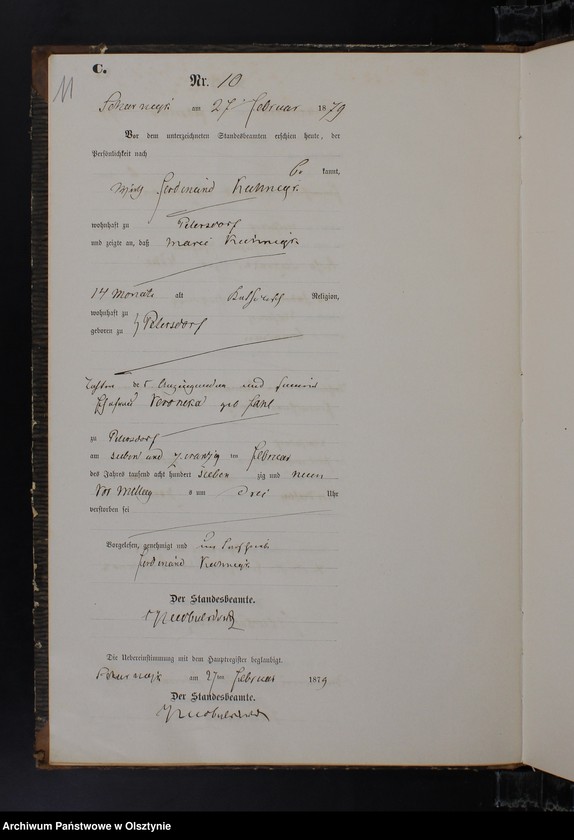 C.
11
Nr. 10
am 27 Februar 1879
Vor dem unterzeichneten Standesbeamten erschien heute, der
Persönlichkeit nach
be kannt,
Ferdinand
wohnhaft zu Petersdorf
und zeigte an, daß Marie
14 Monate alt Religion,
wohnhaft zu
geboren zu Petersdorf
Tochter des Anzeigenden und seiner
Ehefrau Veronika geb
zu Petersdorf
am sieben und zwanzig ten Februar
des Jahres tausend acht hundert sieben zig und neun
Vor Mittag s um drei Uhr
verstorben sei
Vorgelesen, genehmigt und
Ferdinand
Der Standesbeamte.
Die Uebereinstimmung mit dem Hauptregister beglaubigt.
am 27ten Februar 1879
Der Standesbeamte.
Archiwum Państwowe w Olsztynie